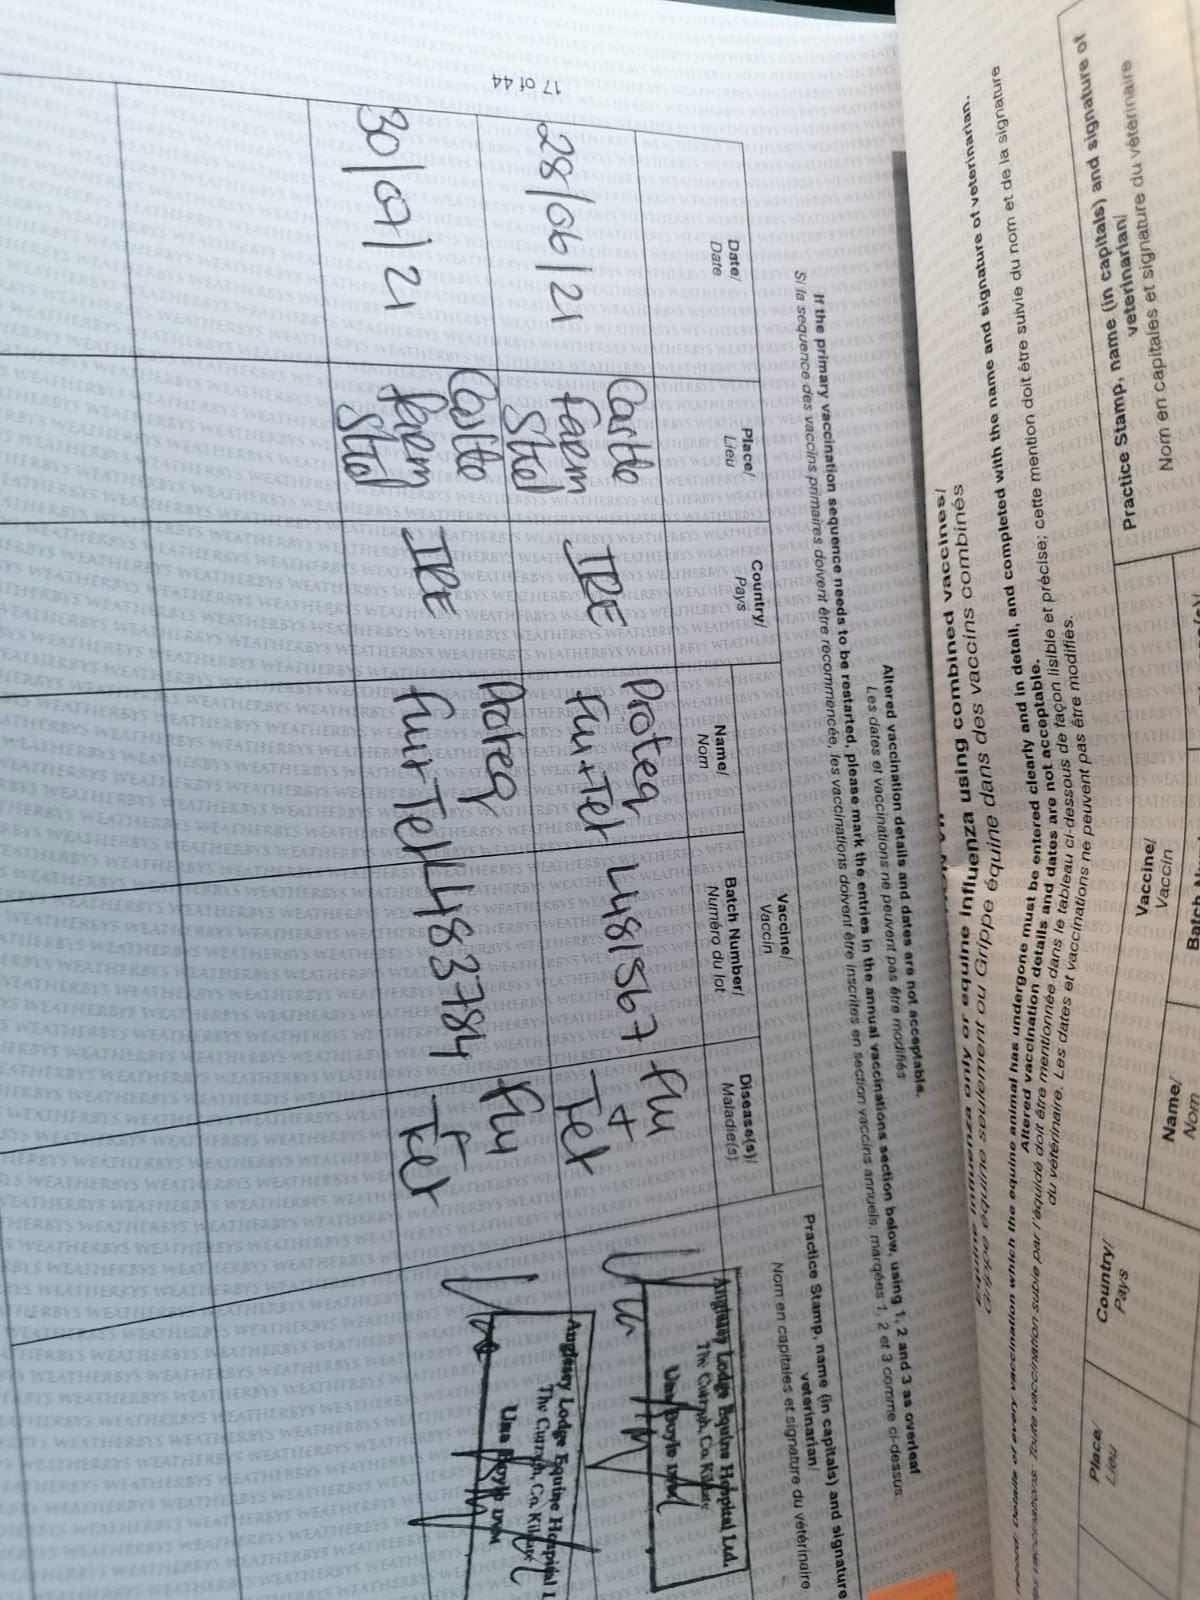 Practice Stamp, name (in capitals) and signature of
veterinarian/
Nom en capitales et signature du vétérinaire
Vaccine/
Vaccin
Name/
Nom
Country/
Pays
Place/
Lieu
Equine influenza only or equine influenza using combined vaccines/
Grippe équine seulement ou Grippe équine dans des vaccins combinés
Details of every vaccination which the equine animal has undergone must be entered clearly and in detail, and completed with the name and signature of veterinarian.
Altered vaccination details and dates are not acceptable.
Toute vaccination subie par l'équidé doit être mentionnée dans le tableau ci-dessous de façon lisible et précise; cette mention doit être suivie du nom et de la signature
du vétérinaire. Les dates et vaccinations ne peuvent pas être modifiés.
Altered vaccination details and dates are not acceptable.
Les dates et vaccinations ne peuvent pas être modifiés
If the primary vaccination sequence needs to be restarted, please mark the entries in the annual vaccinations section below, using 1, 2 and 3 as overleaf
Si la sequence des vaccins primaires doivent être recommencée, les vaccinations doivent être inscrites en section vaccins annuels, marqées 1, 2 et 3 comme ci-dessus.
Date/
Date
Place/
Lieu
Country/
Pays
Vaccine/
Vaccin
Name/
Nom
Batch Number/
Numéro du lot
Disease(s)/
Maladie(s)
Practice Stamp, name (in capitals) and signature
veterinarian/
Nom en capitales et signature du vétérinaire
28/06/21
Castle
farm
Stud
IRE
Proteq
Flu + Tet
L481567
Flu
+
Tet
Anglesey Lodge Equine Hospital Ltd.
The Curragh, Co. Kildare
Una Doyle MVB
30/07/21
Castle
farm
Stud
IRE
Proteq
Flu + Tet
L483784
Flu
+
Tet
Anglesey Lodge Equine Hospital
The Curragh, Co. Kildare
17 of 44